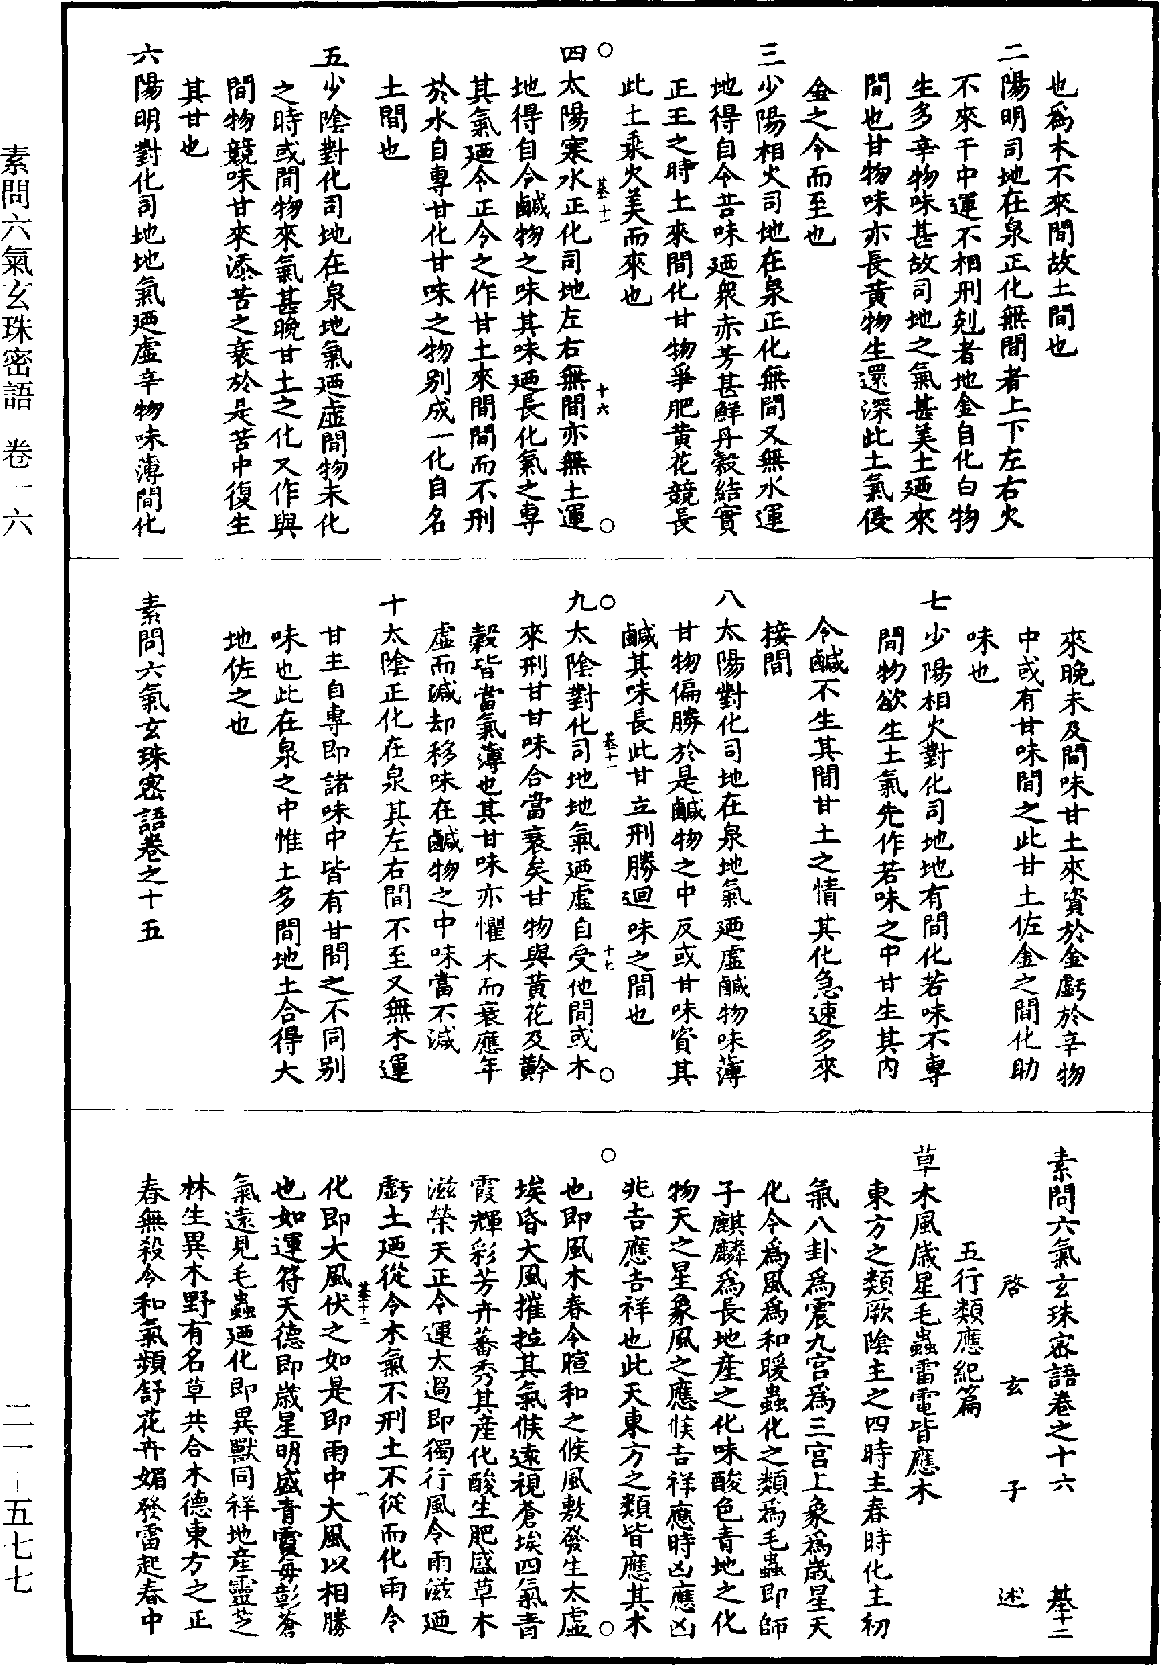 素問六氣玄珠密語　卷一六
二一─五七七
也爲木不來間故土間也
二陽明司地在泉正化無間者上下左右火
不來干中運不相刑剋者地金自化白物
生多辛物味甚故司地之氣甚美土廼來
間也甘物味亦長黃物生還深此土氣侵
金之令而至也
三少陽相火司地在泉正化無間又無水運
地得自令苦味廼衆赤芳甚鮮丹穀結實
正王之時土來間化甘物爭肥黃花競長
此土乘火美而來也
四太陽寒水正化司地左右無間亦無土運
地得自令鹹物之味其味廼長化氣之專
其氣廼令正令之作甘土來間間而不刑
於水自專甘化甘味之物別成一化自名
土間也
五少陰對化司地在泉地氣廼虛間物未化
之時或間物來氣甚晚甘土之化又作與
間物競味甘來添苦之衰於是苦中復生
其甘也
六陽明對化司地地氣廼虛辛物味薄間化
來晚未及間味甘土來資於金虧於辛物
中或有甘味間之此甘土佐金之間化助
味也
七少陽相火對化司地地有間化若味不專
間物欲生土氣先作若味之中甘生其內
令鹹不生其間甘土之情其化急速多來
接間
八太陽對化司地在泉地氣廼虛鹹物味薄
甘物偏勝於是鹹物之中反或甘味資其
鹹其味長此甘立刑勝迴味之間也
基十一
十六
九太陰對化司地地氣廼虛自受他間或木
來刑甘甘味合當衰矣甘物與黃花及黅
穀皆當氣薄也其甘味亦懼木而衰應年
虛而減却移味在鹹物之中味當不減
十太陰正化在泉其左右間不至又無木運
甘主自專即諸味中皆有甘間之不同別
味也此在泉之中惟土多間地土合得大
地佐之也
素問六氣玄珠密語卷之十五
基十一
十七
素問六氣玄珠密語卷之十六　基十二
啓玄子述
五行類應紀篇
草木風歲星毛蟲雷電皆應木
東方之類厥陰主之四時主春時化主初
氣八卦爲震九宮爲三宮上象爲歲星天
化令爲風爲和暖蟲化之類爲毛蟲即師
子麒麟爲長地産之化味酸色青地之化
物天之星象風之應候吉祥應時凶應凶
兆吉應吉祥也此天東方之類皆應其木
也即風木春令暄和之候風敷發生太虛
埃昏大風摧拉其氣候遠視蒼埃四氣青
霞輝彩芳卉蕃秀其産化酸生肥盛草木
滋榮天正令運太過即獨行風令雨滋廼
虧土廼從令木氣不刑土不從而化雨令
化即大風伏之如是即雨中大風以相勝
也如運符天德即歲星明盛青霞每彰蒼
氣遠見毛蟲廼化即異獸同祥地産靈芝
林生異木野有名草共合木德東方之正
春無殺令和氣頻舒花卉媚發雷起春中
基十二
一